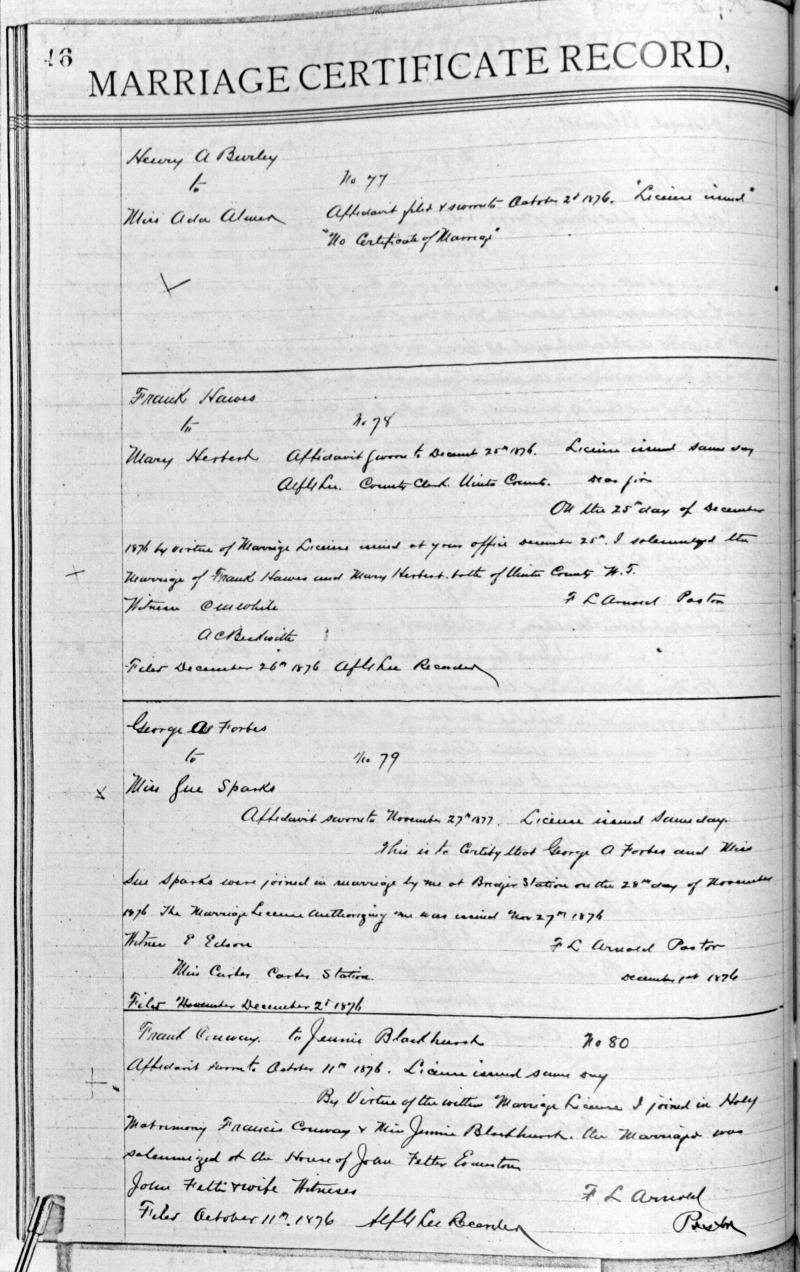 46
MARRIAGE CERTIFICATE RECORD,
Henry A Burley
to No 77
Miss Ada Almer Affidavit filed & sworn to October 2d 1876. "License issued"
"No Certificate of Marriage"
Frank Hawes
to No 78
Mary Herbert Affidavit sworn to Decemb 25th 1876. License issued same day
Lee. County Clerk Uinta County. Dear Sir
On the 25th day of December
1876 by virtue of Marriage License issued at your office December 25th. I solemnized the
Marriage of Frank Hawes and Mary Herbert both of Uinta County W.T.
Witness C M White F L Arnold Pastor
A C Beckwith
Filed December 26th 1876 Lee Recorder
George A Forbes
to No 79
Miss Sue Sparks
Affidavit sworn to November 27th 1877. License issued same day.
This is to Certify that George A Forbes and Miss
Sue Sparks were joined in marriage by me at Bridger Station on the 28th day of November
1876 The Marriage License Authorizing me was issued Nov 27th 1876
Witness E Edson F L Arnold Pastor
Miss Carter Carter Station. December 1st 1876
Filed November December 2d 1876
Frank Conway. to Jennie Blackhurst No 80
Affidavit sworn to October 11th 1876. License issued same day
By Virtue of the within Marriage License I joined in Holy
Matrimony Francis Conway & Miss Jennie Blackhurst. the Marriage was
solemnized at the House of John Felter Evanston
John Felter & wife Witnesses F L Arnold
Filed October 11th. 1876 Lee Recorder Pastor